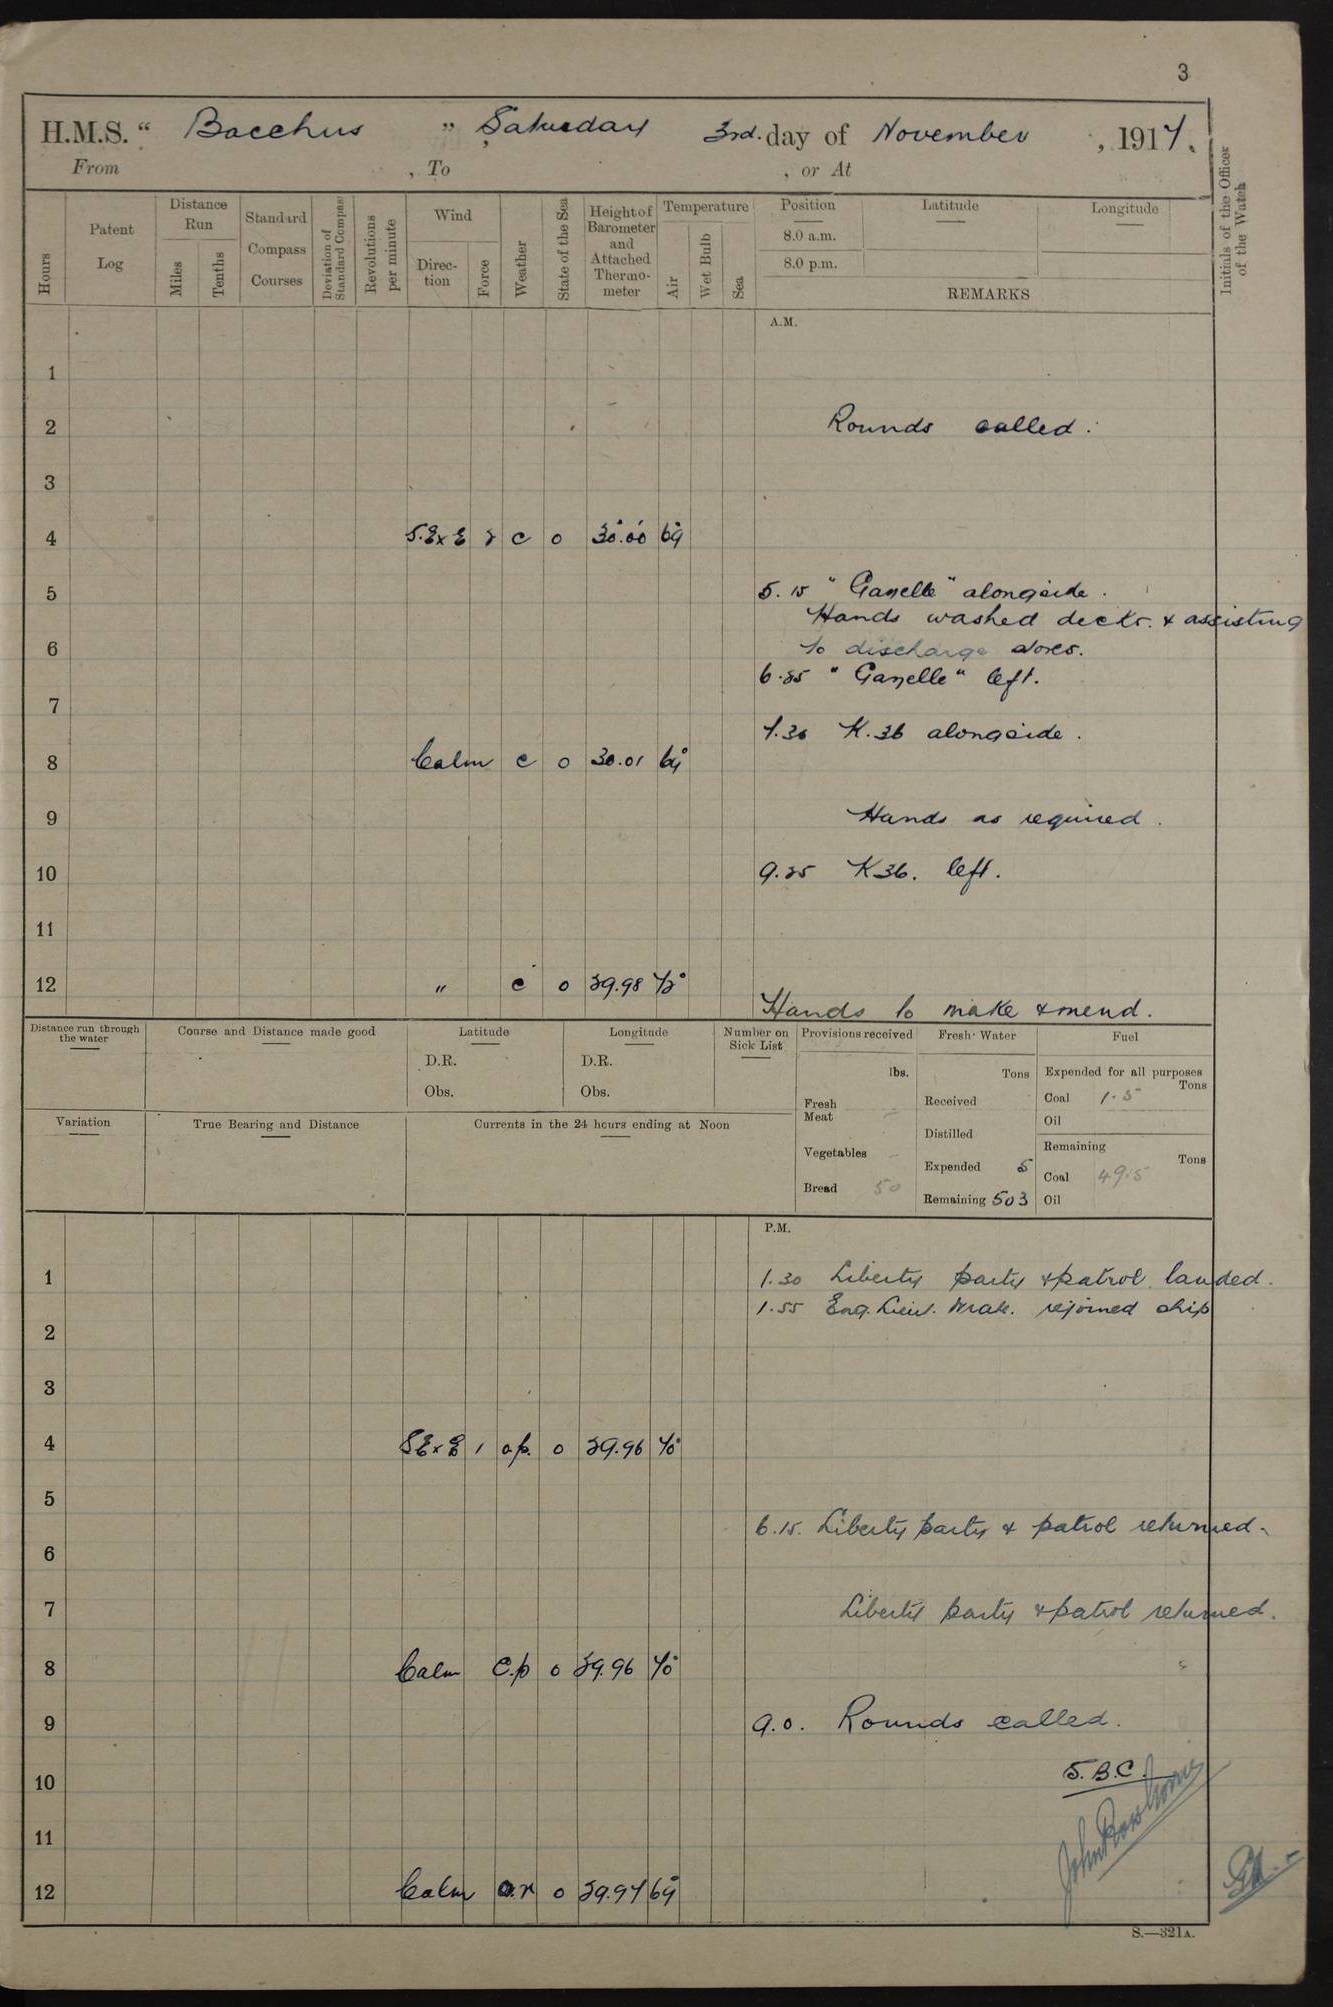 3
H.M.S. “ Bacchus ” Saturday 3rd. day of November , 1917.
From , To , or At
Hours
Patent Log
Distance Run
Miles
Tenths
Standard Compass Courses
Deviation of Standard Compass
Revolutions per minute
Wind
Direction
Force
Weather
State of the Sea
Height of Barometer and Attached Thermometer
Temperature
Air
Wet Bulb
Sea
Position
8.0 a.m.
8.0 p.m.
Latitude
Longitude
REMARKS
Initials of the Officer of the Watch
A.M.
1
2 Rounds called.
3
4 S.E x E 2 c o 30.00 69
5 5.15 " Gazelle " alongside.
Hands washed decks. & assisting
6 to discharge stores.
6.25 " Gazelle " left.
7
7.30 K.36 alongside.
8 Calm c o 30.01 69°
9 Hands as required.
10 9.25 K36. left.
11
12 " c o 29.98 72°
Hands to make & mend.
Distance run through the water
Course and Distance made good
Latitude
D.R.
Obs.
Longitude
D.R.
Obs.
Number on Sick List
Provisions received
lbs.
Fresh Meat -
Vegetables -
Bread 50
Fresh Water
Tons
Received
Distilled
Expended 5
Remaining 503
Fuel
Expended for all purposes
Tons
Coal 1.5
Oil
Remaining
Tons
Coal 49.5
Oil
Variation
True Bearing and Distance
Currents in the 24 hours ending at Noon
P.M.
1 1.30 Liberty party & patrol landed.
1.55 Eng. Lieut. rejoined ship
2
3
4 SE x E 1 o.p. o 29.96 70°
5
6.15. Liberty party & patrol returned.
6
7 Liberty party & patrol returned.
8 Calm c.p o 29.96 70°
9 9.0. Rounds called.
10 S.B.C.
11
12 Calm o.r o 29.97 69
S.—321A.